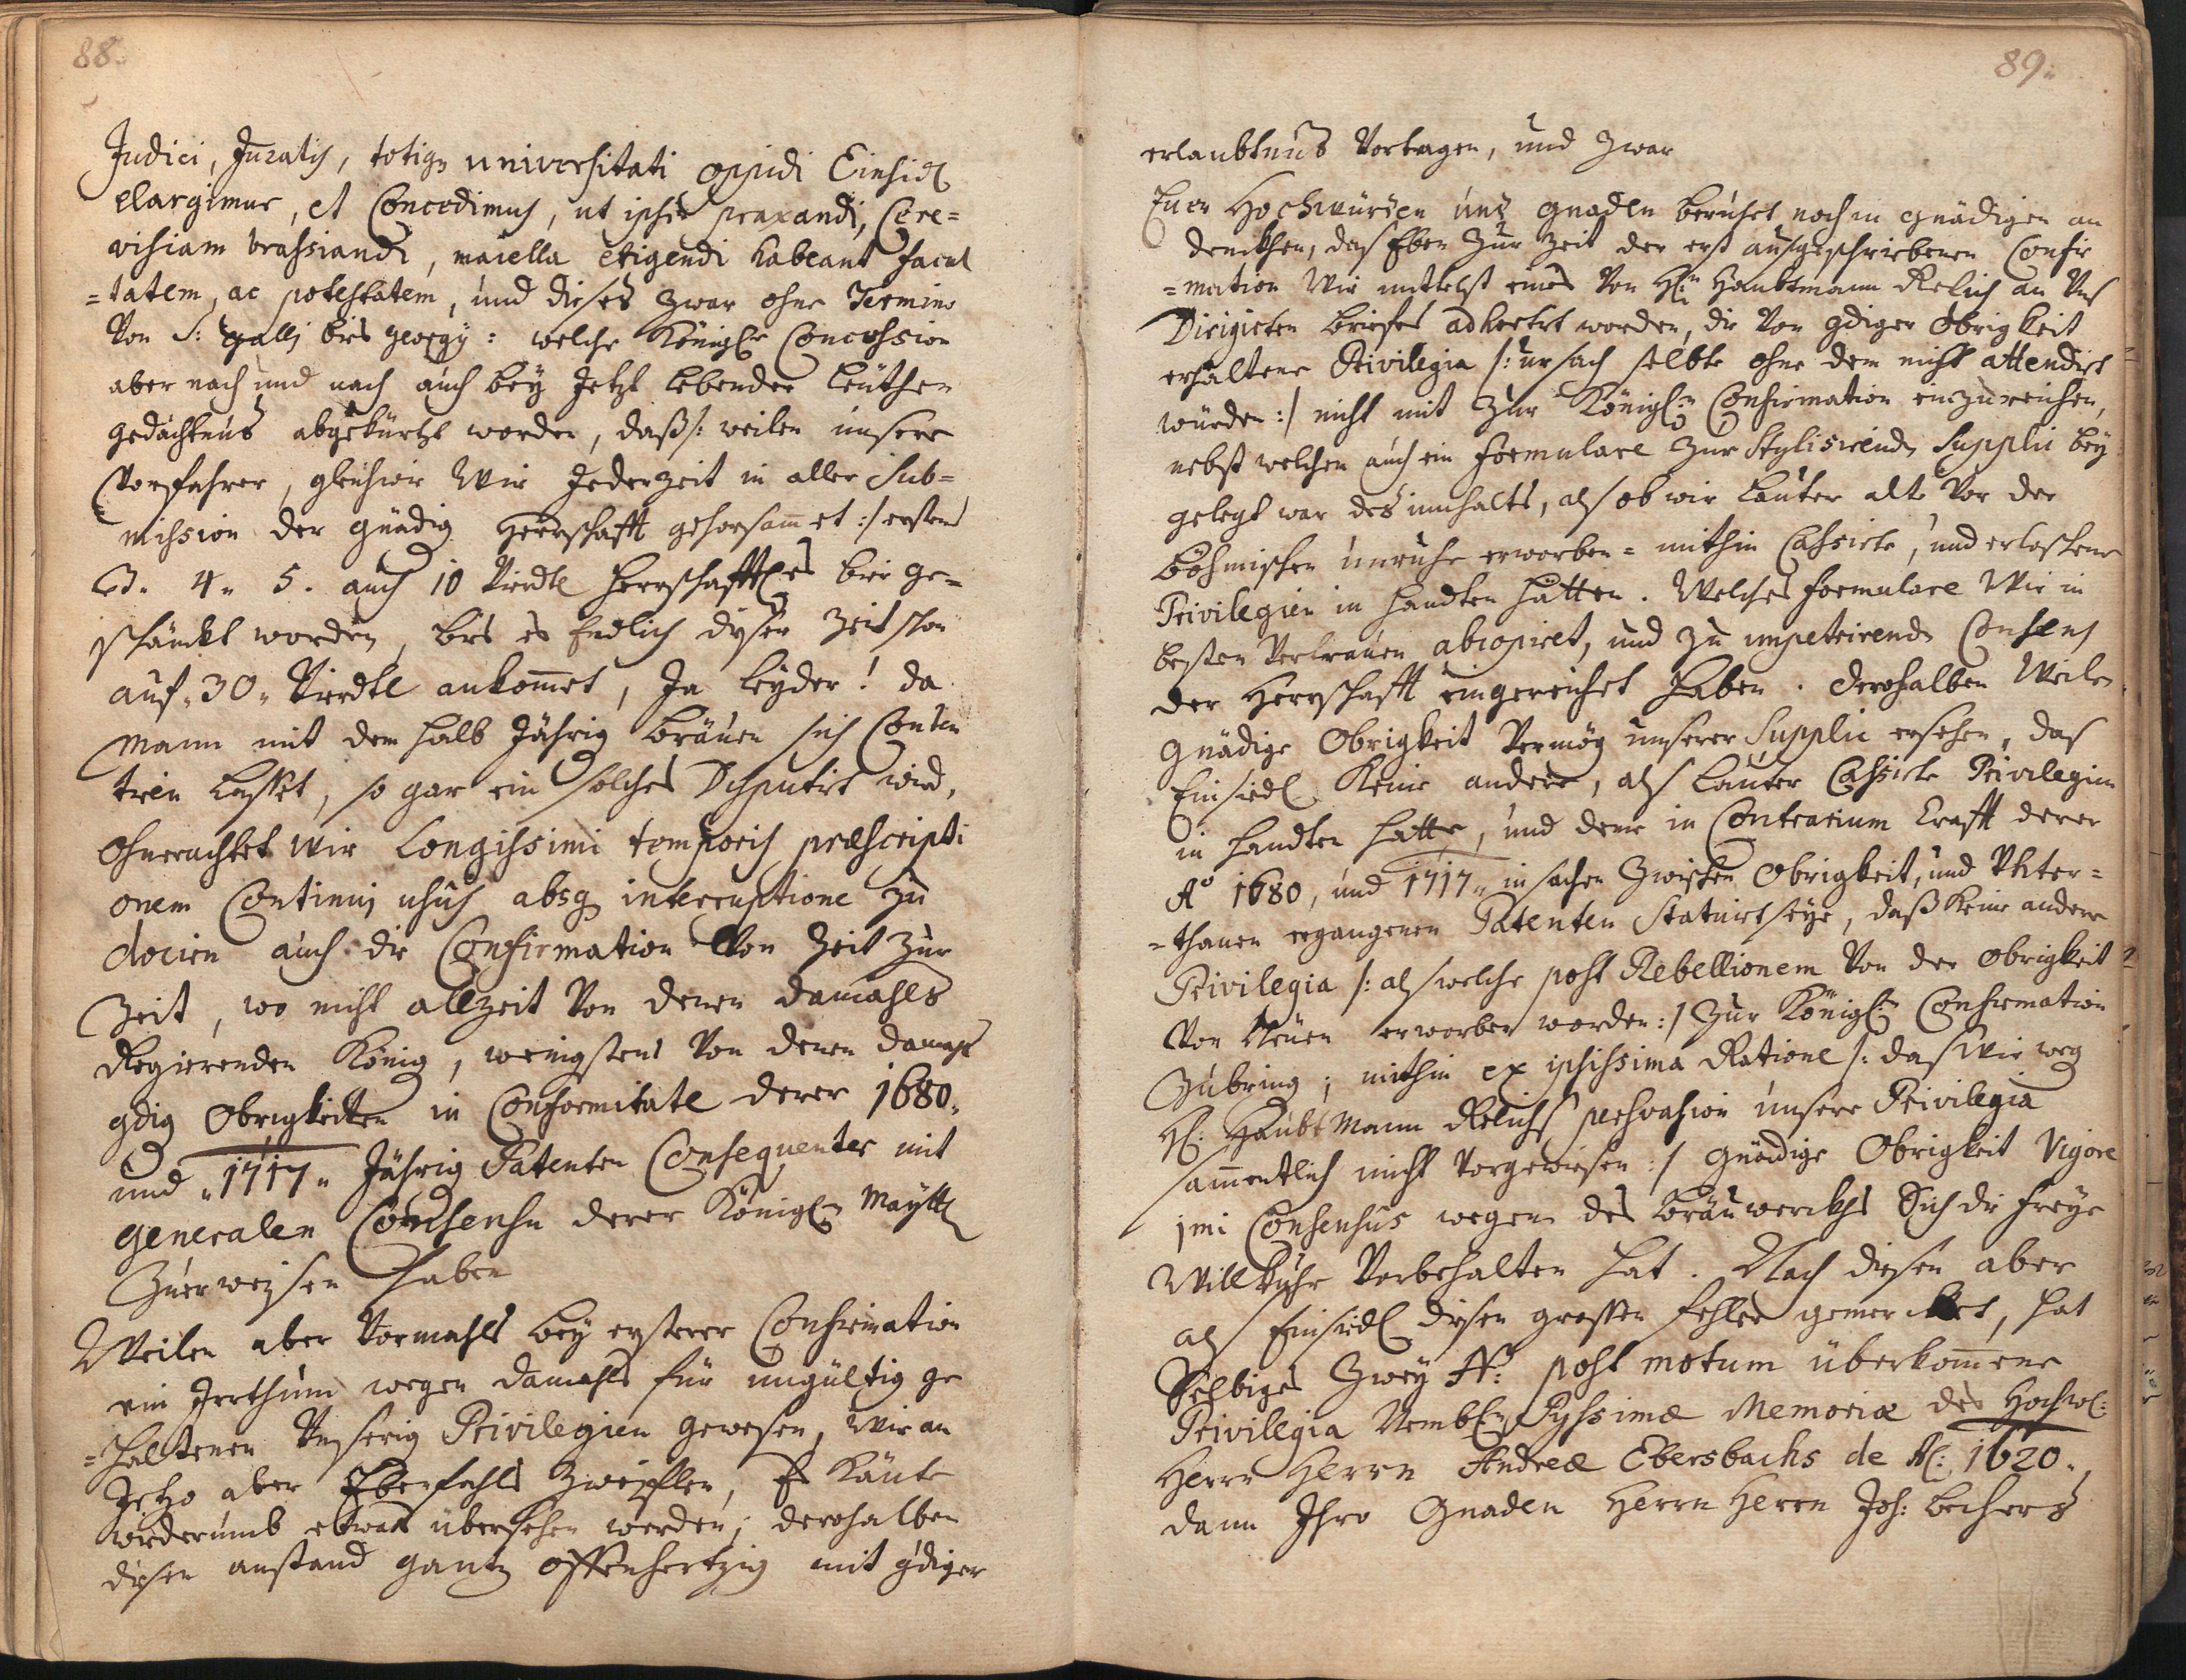 88.
Judici, Juratis, totiq; universitati oppidi Einsidl
elargimur, et Concedimus, ut ipsis praxandi, Cere=
visiam brassiandi, maiella erigendi habeant facul
=tatem, ac potestatem, und dieses zwar ohne Termino
Von S: Galli bis Georgy: welche Königl: Concession
aber nach und nach auch bey Jetzt lebender leüthen
gedächtnus abgekürtzt worden, daß /: weilen unsere
Vorfahrer, gleichwie Wir Jederzeit in aller Sub=
mission der gnädig Herrschafft gehorsamet :/ erstens
3. 4. 5. auch 10 Viertl Herrschafftl. bier ge=
schänckt worden, bis es Endlich dieser Zeit schon
auf 30 Viertl ankommet, Ja leyder! da
Mann mit dem halb Jährig bräuen sich Conten
tiren lasset, so gar ein solches Disputirt wird,
Ohnerachtet wir Longissimi temporis præscripti
onem Continui usus absq; interruptione zu
dociren auch die Confirmation Von Zeit zur
Zeit, wo nicht allzeit Von denen damahls
Regierenden König, wenigstens Von denen damahls
gdig Obrigkeiten in Conformitate derer 1680.
und 1717 Jährig Patenten Consequenter mit
generalen Consensu derer Königl: Maytt
Zuerweisen haben
Weilen aber Vormahls bey ersterer Confirmation
ein Irrthum wegen damahls für ungültig ge
=haltenen Unserig Privilegien gewesen, Wir an
Jetzo aber Ebenfahls Zweyflen, Es könte
wiederumb etwas übersehen werden; derohalben
diesen anstand gantz offenhertzig mit gdiger
89.
erlaubtnus Vortragen, und zwar
Euer Hochwürden und gnaden beruhet noch in gnädigen an
denckhen, daß Eben zur Zeit der erst ausgeschriebenen Confir
=mation Wir mittelst eines Von Hl: Haubtmann Relich an Uns
Dirigirten briefes adhortirt worden, die Von gdiger Obrigkeit
erhaltene Privilegia /: ursach selbte ohne dem nicht attendirt
würden :/ nicht mit zur Königl: Confirmation einzureichen,
nebst welchen auch ein formulare zur Stylisirend Supplic bey
gelegt war des innhalts, als ob wir lauter alte Vor der
böhmischen unruhe erworben= mithin Cassirte, und erloschene
Privilegien in handten hätten. Welches formulare Wir in
besten Vertrauen abcopiret, und zu impetrirend Consens
der Herrschafft eingereichet haben. derohalben Weilen
Gnädige Obrigkeit Vermög unserer Supplic ersehen, das
Einsiedl Keine andere, als lauter Cassirte Privilegien
in handten hatte, und deme in Contrarium krafft derer
Aº 1680, und 1717 in sachen Zwischen Obrigkeit, und Unter=
=thanen ergangenen Patenten Statuirt seye, daß keine andere
Privilegia /: als welche post Rebellionem Von der Obrigkeit
Von Neuen erworben worden :/ Zur Königl: Confirmation
Zubring; mithin ex ipsissima Ratione /: das Wir weg
Hl: Haubt Mann Relichs persvasion unsere Privilegia
sammentlich nicht Vorgewiesen :/ Gnädige Obrigkeit Vigore
imi Consensus wegen des bräuwerckhs Sich die freye
Willkuhr Vorbehalten hat. Nach diesen aber
als Einsiedl diesen grossen fehler gemercket, hat
Selbiges Zwey Aº: post motum überkommene
Privilegia Nembl: Pyssimæ Memoriæ des Hochw:
Herrn Herrn Andreæ Ebersbachs de Aº: 1620.,
dann Ihro Gnaden Herrn Herrn Joh: bechers